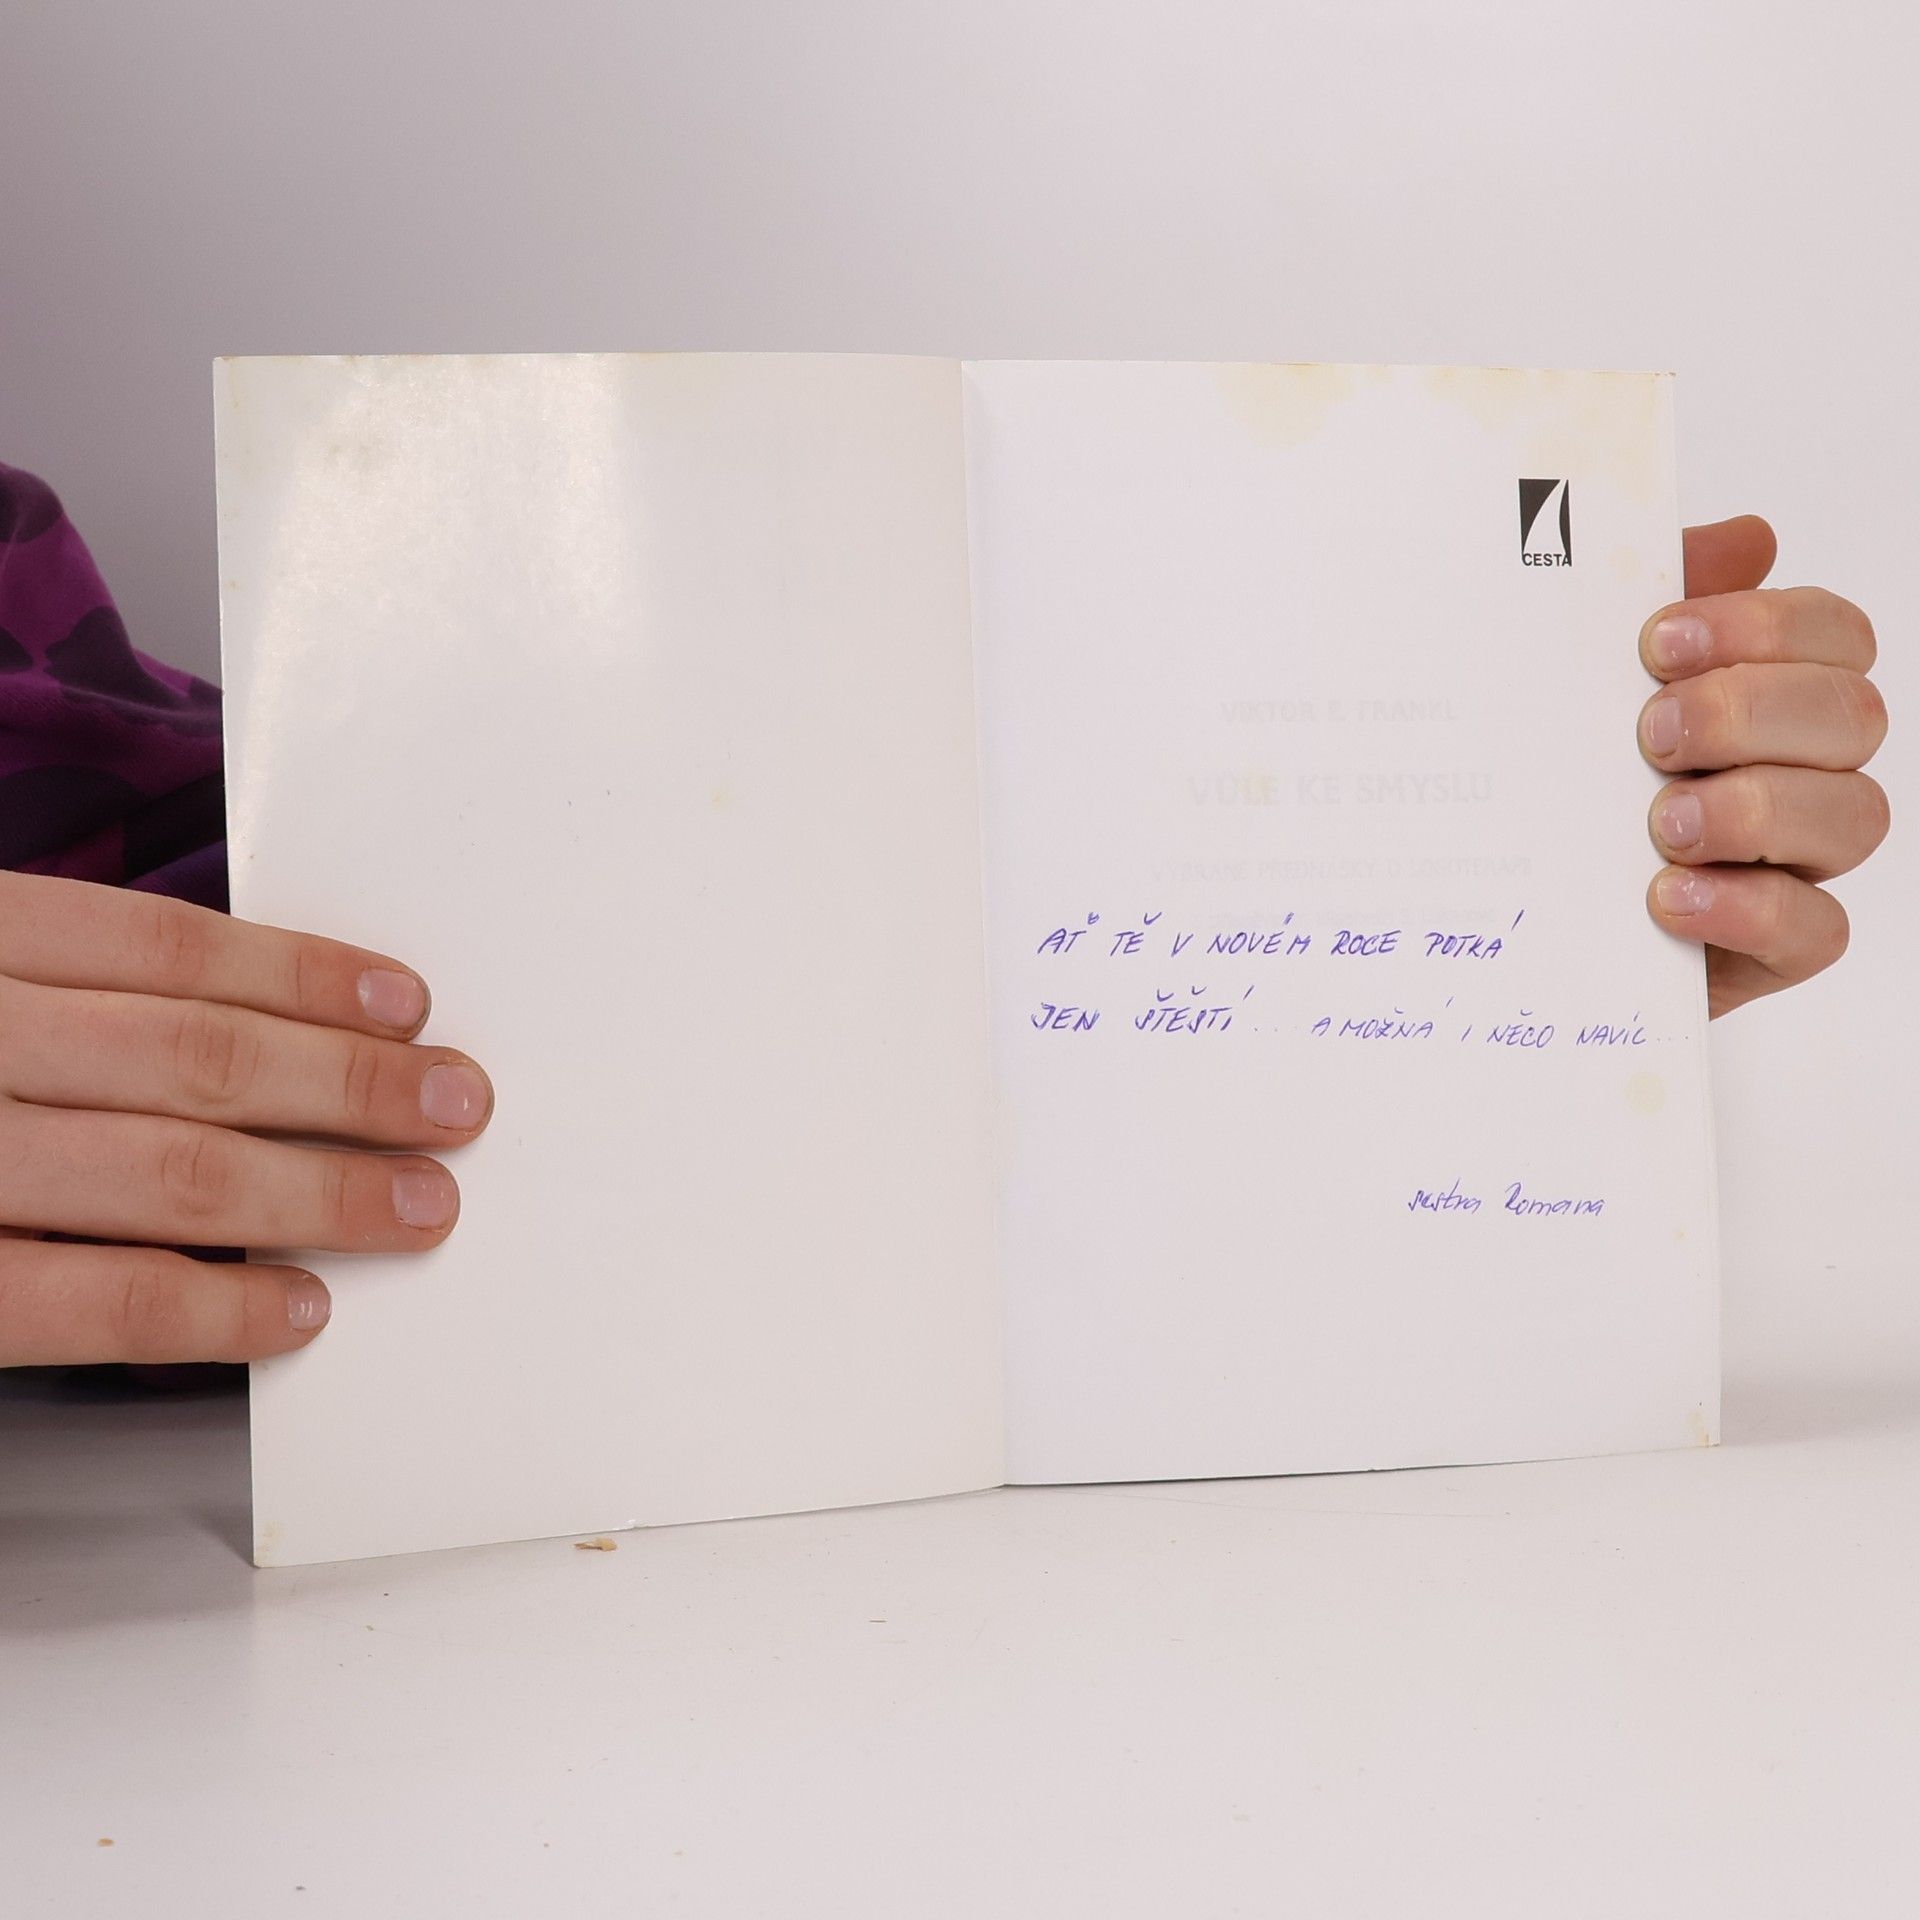 CESTA
VIKTOR E. FRANKL
VŮLE KE SMYSLU
VYBRANÉ PŘEDNÁŠKY O LOGOTERAPII
AŤ TĚ V NOVÉM ROCE POTKÁ
JEN ŠTĚSTÍ... A MOŽNÁ I NĚCO NAVÍC...
sestra Romana